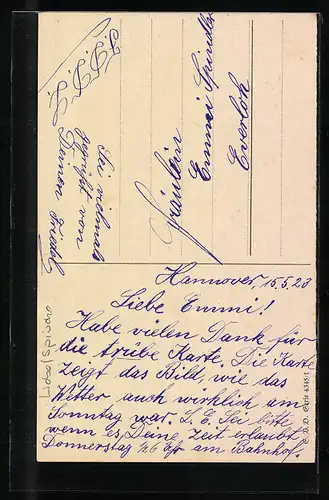 Hannover, 15.5.23
Liebe Emmi!
Habe vielen Dank für
die trübe Karte. Die Karte
zeigt das Bild, wie das
Wetter auch wirklich am
Sonntag war. L. E. Sei bitte
wenn es Deine Zeit erlaubt
Donnerstag ½6 Uhr am Bahnhof.
Sei vielmals
gegrüßt von
Deinem
Fräulein
Emmi Spindler
Everloh